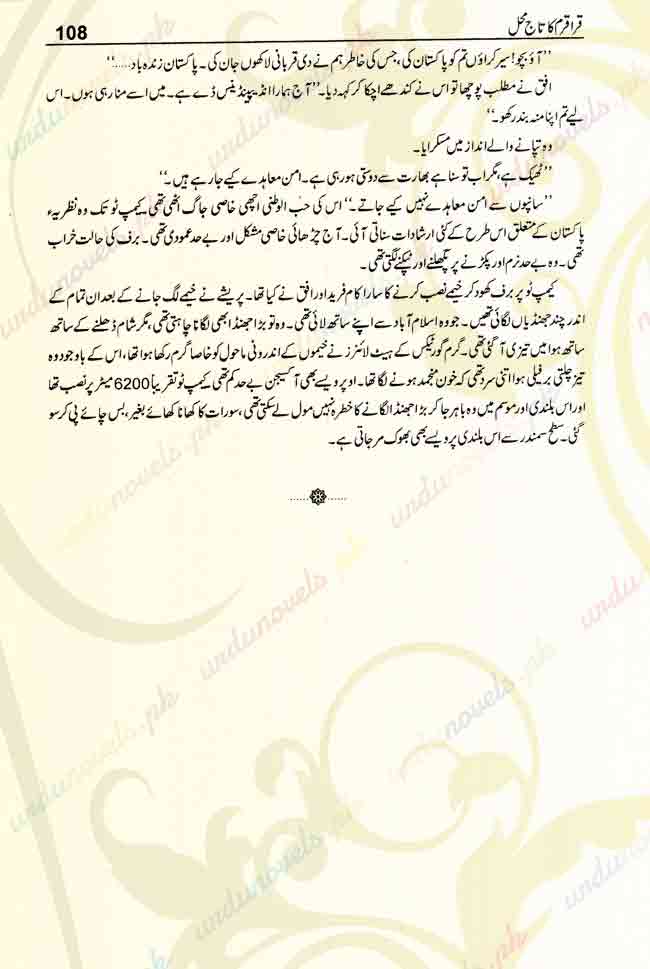 قراقرم کا تاج محل
108
’’آؤ بچو! سیر کراؤں تم کو پاکستان کی، جس کی خاطر ہم نے دی قربانی لاکھوں جان کی۔ پاکستان زندہ باد.....‘‘
افق نے مطلب پوچھا تو اس نے کندھے اچکا کر کہہ دیا۔ ’’آج ہمارا انڈیپینڈینس ڈے ہے۔ میں اسے منا رہی ہوں۔ اس
لیے تم اپنا منہ بند رکھو۔‘‘
وہ تپانے والے انداز میں مسکرایا۔
’’ٹھیک ہے، مگر اب تو سنا ہے بھارت سے دوستی ہو رہی ہے۔ امن معاہدے کیے جا رہے ہیں۔‘‘
’’سانپوں سے امن معاہدے نہیں کیے جاتے۔‘‘ اس کی حب الوطنی اچھی خاصی جاگ اٹھی تھی۔ کیمپ ٹو تک وہ نظریہء
پاکستان کے متعلق اس طرح کے کئی ارشادات سناتی آئی۔ آج چڑھائی خاصی مشکل اور بے حد عمودی تھی۔ برف کی حالت خراب
تھی۔ وہ بے حد نرم اور پکڑنے پر پگھلنے اور ٹپکنے لگتی تھی۔
کیمپ ٹو پر برف کھود کر خیمے نصب کرنے کا سارا کام فرید اور افق نے کیا تھا۔ پریشے نے خیمے لگ جانے کے بعد ان تمام کے
اندر چند جھنڈیاں لگائی تھیں۔ جو وہ اسلام آباد سے اپنے ساتھ لائی تھی۔ وہ تو بڑا جھنڈا بھی لگانا چاہتی تھی، مگر شام ڈھلنے کے ساتھ
ساتھ ہوا میں تیزی آ گئی تھی۔ گرم گورٹیکس کے ہیٹ لائنرز نے خیموں کے اندرونی ماحول کو خاصا گرم رکھا ہوا تھا، اس کے باوجود وہ
تیز چلتی برفیلی ہوا اتنی سرد تھی کہ خون منجمد ہونے لگا تھا۔ اوپر ویسے بھی آکسیجن بے حد کم تھی۔ کیمپ ٹو تقریباً 6200 میٹر پر نصب تھا
اور اس بلندی اور موسم میں وہ باہر جا کر بڑا جھنڈا لگانے کا خطرہ نہیں مول لے سکتی تھی، سو رات کا کھانا کھائے بغیر، بس چائے پی کر سو
گئی۔ سطح سمندر سے اس بلندی پر ویسے بھی بھوک مر جاتی ہے۔
urdunovels.pk
urdunovels.pk
urdunovels.pk
urdunovels.pk
urdunovels.pk
urdunovels.pk